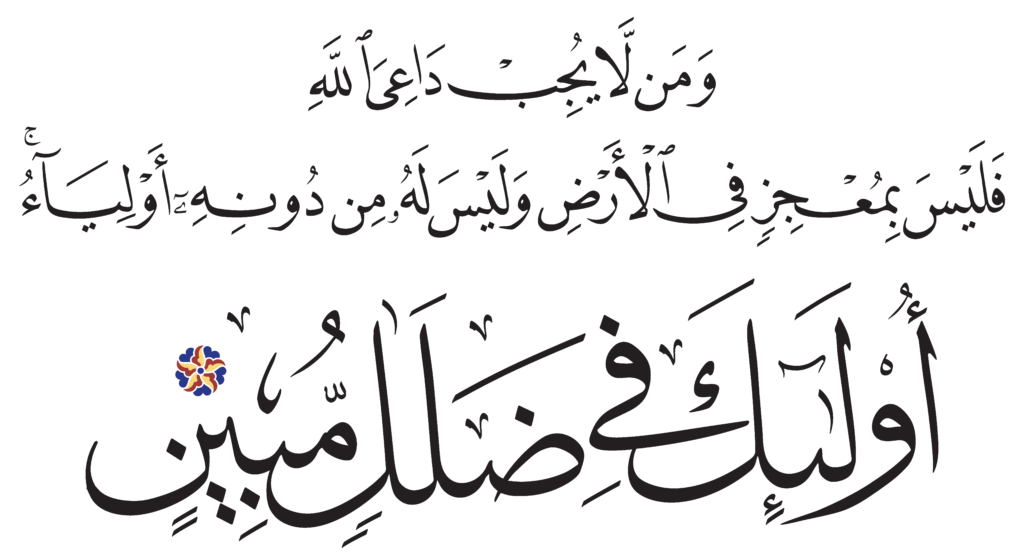 وَمَن لَّا يُجِبْ دَاعِىَ ٱللَّهِ
فَلَيْسَ بِمُعْجِزٍ فِى ٱلْأَرْضِ وَلَيْسَ لَهُۥ مِن دُونِهِۦٓ أَوْلِيَآءُ ۚ
أُو۟لَـٰٓئِكَ فِى ضَلَـٰلٍ مُّبِينٍ